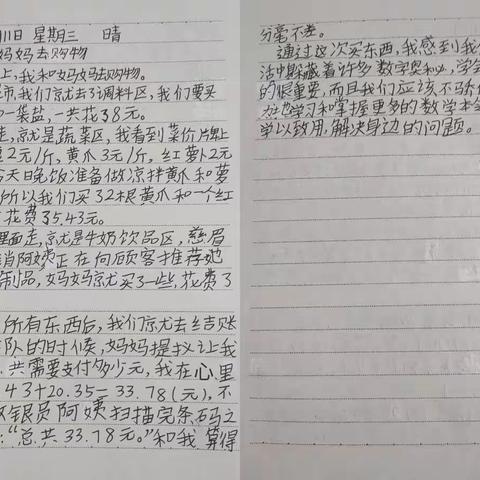 11日 星期三 晴
妈妈去购物
上,我和妈妈去购物。
市,我们京尤去了调料区,我们要买
一袋盐,一共花38元。
走,京尤是蔬菜区,我看到菜价片牌上
2元/斤,黄爪3元/斤,红萝卜2元
今天晚饭准备做凉拌黄爪和萝
所以我们买32根黄爪和一个红
花费35.43元。
里面走,京尤是牛奶饮品区,慈眉
肖阿姨正在向顾客推荐她
制品,妈妈京尤买了一些,花费了
所有东西后,我们京尤去结账
队的时候,妈妈提议让我
共需要支付多少元,我在心里
43+20.35=33.78(元),不
银员阿姨扫描完条码之
:“总共33.78元。”和我算得
分毫不差。
通过这次买东西,我感到我们
活中黑藏着许多数学奥秘,学会
的很重要,而且我们应该不骄
地学习和掌握更多的数学本
学以致用,解决身边的问题。